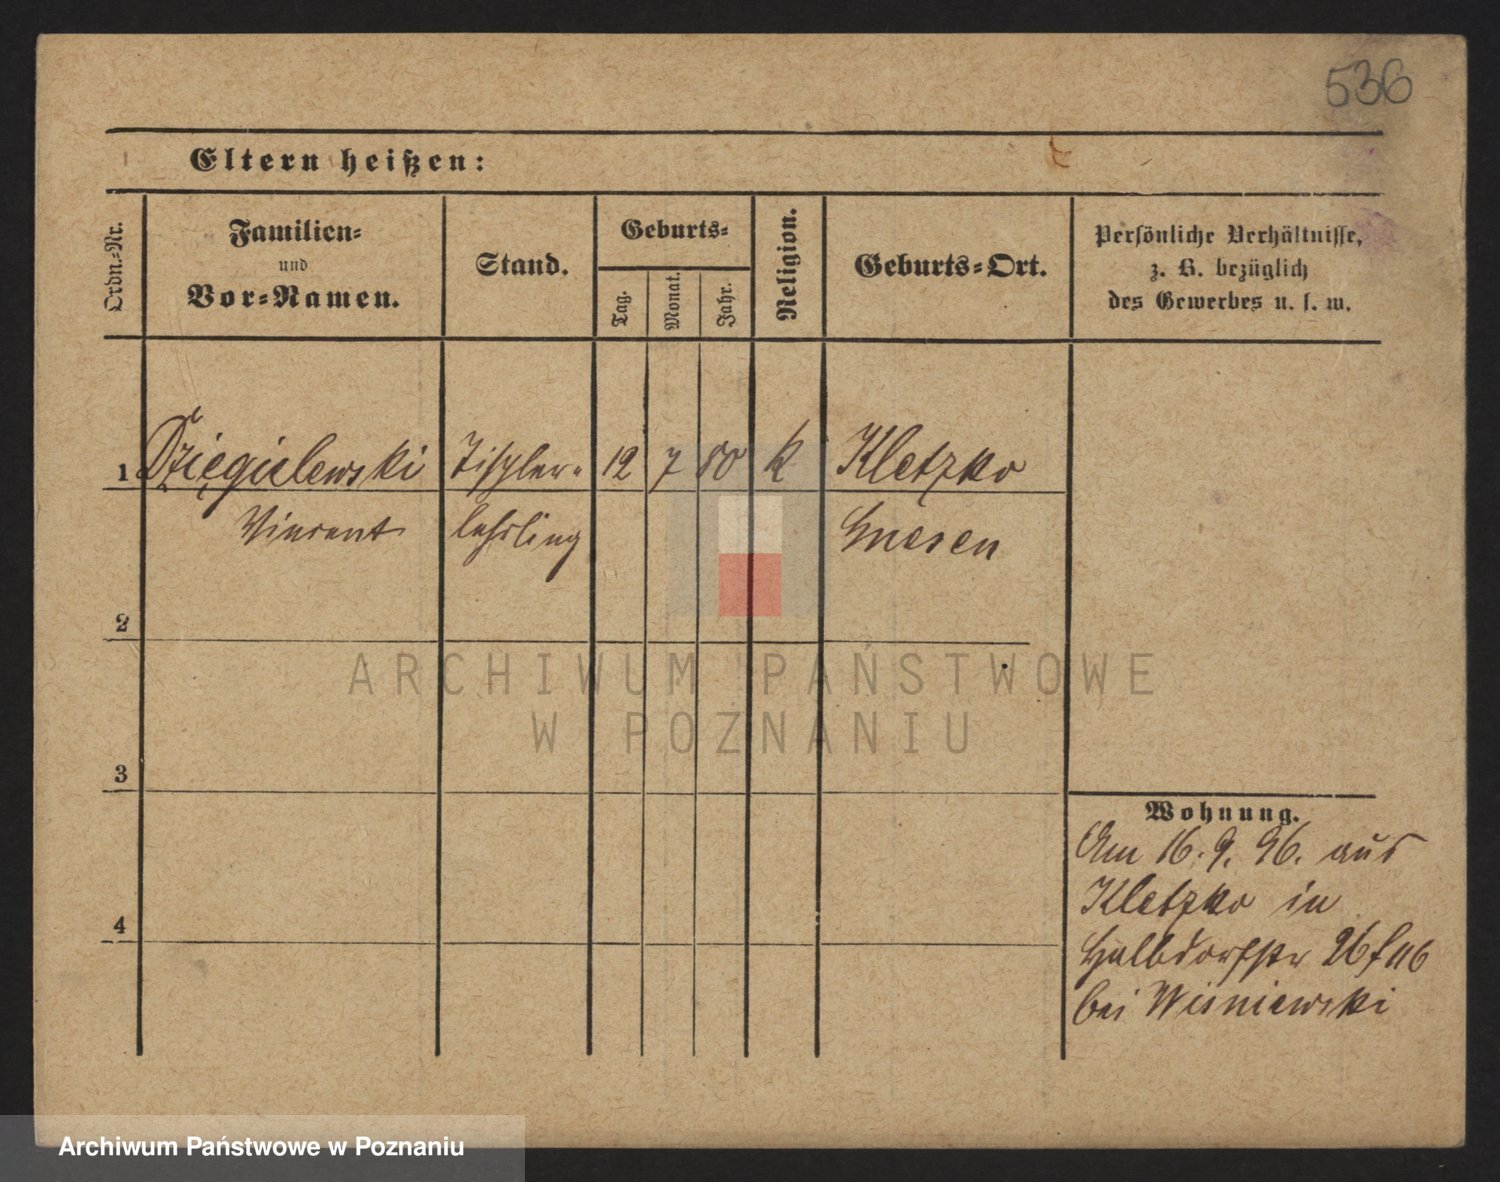 536
Eltern heißen:
Ordn.-Nr.
Familien-
und
Vor-Namen.
Stand.
Geburts-
Tag.
Monat.
Jahr.
Religion.
Geburts-Ort.
Persönliche Verhältnisse,
z. B. bezüglich
des Gewerbes u. s. w.
1 Dzięgielewski Tischler- 12 7 80 k Kletzko
Vincent lehrling Gnesen
2
3
4
Wohnung.
Am 16. 9. 96. aus
Kletzko in
Halbdorfstr 26
bei Wisniewski
ARCHIWUM PAŃSTWOWE
W POZNANIU
Archiwum Państwowe w Poznaniu